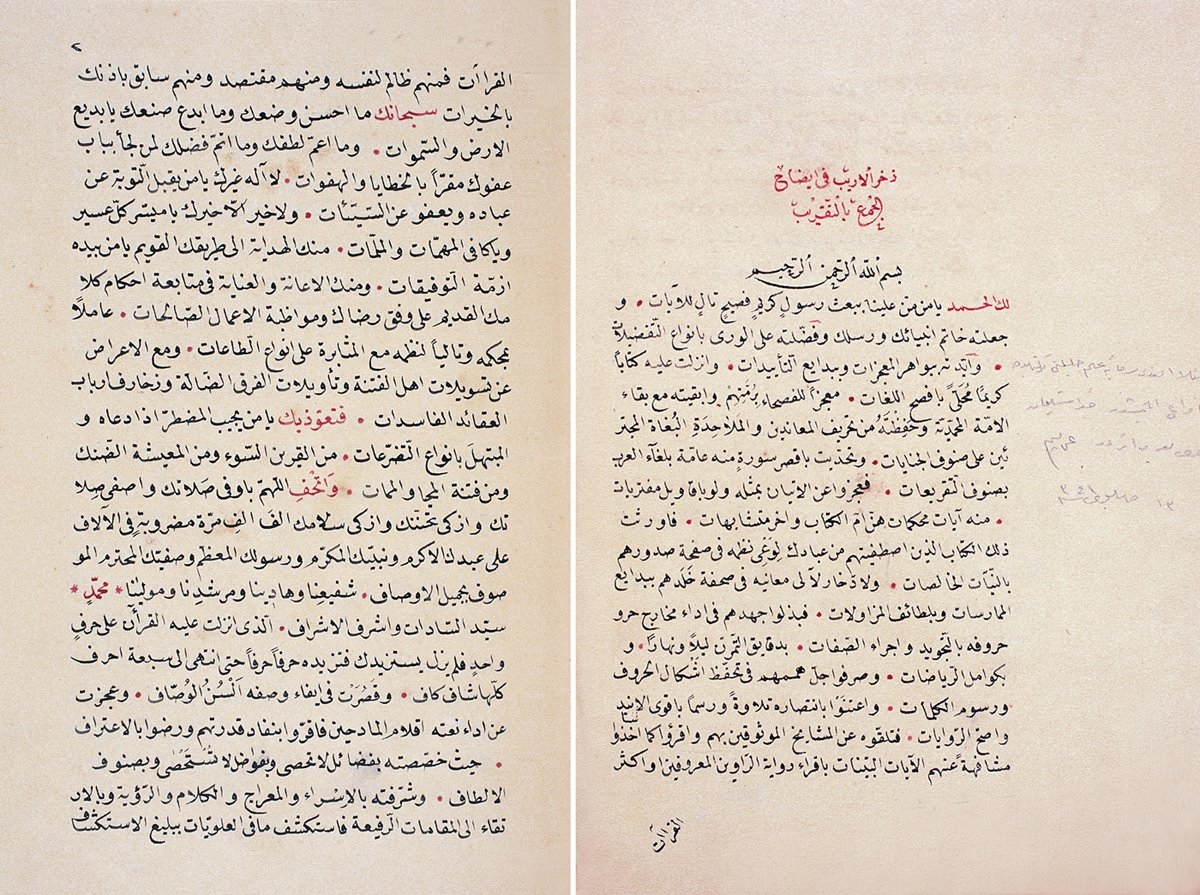 ذخر الاريب في ايضاح
الجمع بالتقريب
بسم الله الرحمن الرحيم
لك الحمد يا من من علينا ببعث رسولٍ كريمٍ فصيحٍ تالٍ للآيات • و
جعلته خاتم انبيائك ورسلك وفضّلته على الورى بانواع التّفضيلات
• وآيّدته ببواهر المعجزات وببدايع التّأييدات • وانزلت عليه كتابًا
كريمًا مُحلّىً بافصح اللغات • معجزًا للفصحاء برُمّتهم وابقيته مع بقاء
الامّة المحمّديّة وحَفِظْتَهُ من تحريف المعاندين والملاحدة البُغاة المجتر
ئين على صنوف الجنايات • وتحدّيت باقصر سورةٍ منه عامّة بلغآء العرب
بصنوف التّقريعات • فعجزوا عن الاتيان بمثله ولو باقاويل مفتريات
• منه آيات محكمات هنّ امّ الكتاب واخر متشابهات • فاورثت
ذلك الكتاب الذين اصطفيتهم من عبادك لوَعْيِ نظمه في صفحة صدورهم
بالنّيّات الخالصات • ولادّخار لآلى معانيه في صحفة خَلَدهم ببدايع
الممارسات وبلطائف المزاولات • فبذلوا جهدهم في اداء مخارج حرو
حروفه بالتّجويد واجراء الصّفات • بدقايق التّمرّن ليلاً ونهارًا • و
بكوامل الرّياضات • وصرفوا جلّ هممهم في تحفّظ اشكال الحروف
ورسوم الكلمات • واعتنَوْا بانتصاره تلاوةً ورسمًا باقوى الاسانيد
واصحّ الرّوايات • فتلقّوه عن المشايخ الموثوقين بهم واقرؤا كما اخذوا
مشافهةً عنهم الآيات البيّنات باقراء رواية الرّاوين المعروفين واكثر
القراآت
٢
القراآت فمنهم ظالم لنفسه ومنهم مقتصد ومنهم سابق باذنك
بالخيرات سبحانك ما احسن وضعك وما ابدع صنعك يا بديع
الارض والسّموات • وما اعمّ لطفك وما اتمّ فضلك لمن لجأ بباب
عفوك مقرًّا بالخطايا والهفوات • لا آله غيرك يا من يقبل التّوبة عن
عباده ويعفو عن السّيّئات • ولا خير الّا خيرك يا ميسّر كلّ عسير
ويا كافى المهمّات والملمّات • منك الهداية الى طريقك القويم يا من بيده
ازمّة التّوفيقات • ومنك الاعانة والعناية في متابعة احكام كلا
مك القديم على وفق رضاك ومواظبة الاعمال الصّالحات • عاملاً
بمحكمه وتاليًا لنظمه مع المثابرة على انواع الطّاعات • ومع الاعراض
عن تسويلات اهل الفتنة وتأويلات الفرق الضّالة وزخارف ارباب
العقائد الفاسدات • فنعوذ بك يا من يجيب المضطرّ اذا دعاه و
المبتهل بانواع التّضرّعات • من القرين السّوء ومن المعيشة الضّنك
ومن فتنة المحيا والممات • واتحف اللهمّ باوفى صلاتك واصفى صِلا
تك وازكى تحيّتك وازكى سلامك الف الفِ مرّة مضروبةٍ في الآلاف
على عبدك الاكرم ونبيّك المكرّم ورسولك المعظّم وصفيّك المحترم المو
صوف بجميل الاوصاف • شفيعنا وهادينا ومرشدنا ومولينا * محمّدٍ *
سيّد السّادات واشرف الاشراف • الّذى انزلت عليه القرآن على حرفٍ
واحدٍ فلم يزل يستزيدك فتزيده حرفًا حرفًا حتى انتهى الى سبعة احرف
كلّها شاف كاف • وقَصُرَتْ في ايفاء وصفه اَلْسُنُ الوُصّاف • وعجزت
عن اداء نعته اقلام المادحين فاقرّوا بنفاد قدرتهم ورضوا بالاعتراف
• حيث خصّصته بفضائل لا تحصى وبفواضل لا تُستَقصى وبصنوف
الالطاف • وشرّفته بالاسراء والمعراج والكلام والرّؤية وبالار
تقاء الى المقامات الرّفيعة فاستكشف ما في العلويّات ببليغ الاستكشاف